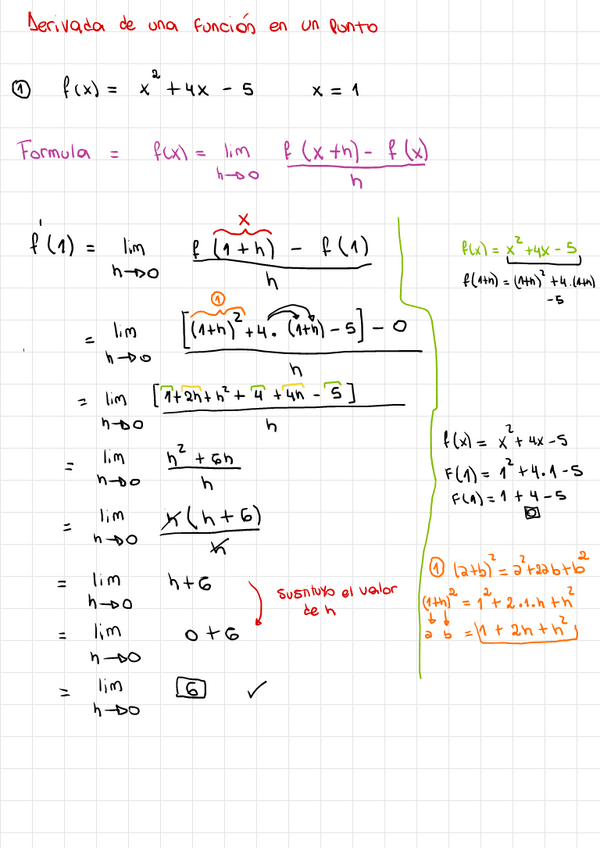 Derivada de una función en un punto
① f(x) = x² + 4x - 5 x = 1
Formula = f(x) = lim h→0 f(x+h) - f(x) / h
f'(1) = lim h→0 f(1+h) - f(1) / h
x
= lim h→0 [(1+h)² + 4·(1+h) - 5] - 0 / h
①
= lim h→0 [1+2h+h² + 4 + 4h - 5] / h
= lim h→0 h² + 6h / h
= lim h→0 h(h+6) / h
= lim h→0 h+6
= lim h→0 0+6
= lim h→0 6 ✓
sustituyo el valor
de h
f(x) = x² + 4x - 5
f(1+h) = (1+h)² + 4·(1+h)
-5
f(x) = x² + 4x - 5
F(1) = 1² + 4·1 - 5
F(1) = 1 + 4 - 5
0
① (a+b)² = a² + 2ab + b²
(1+h)² = 1² + 2·1·h + h²
a b = 1 + 2h + h²